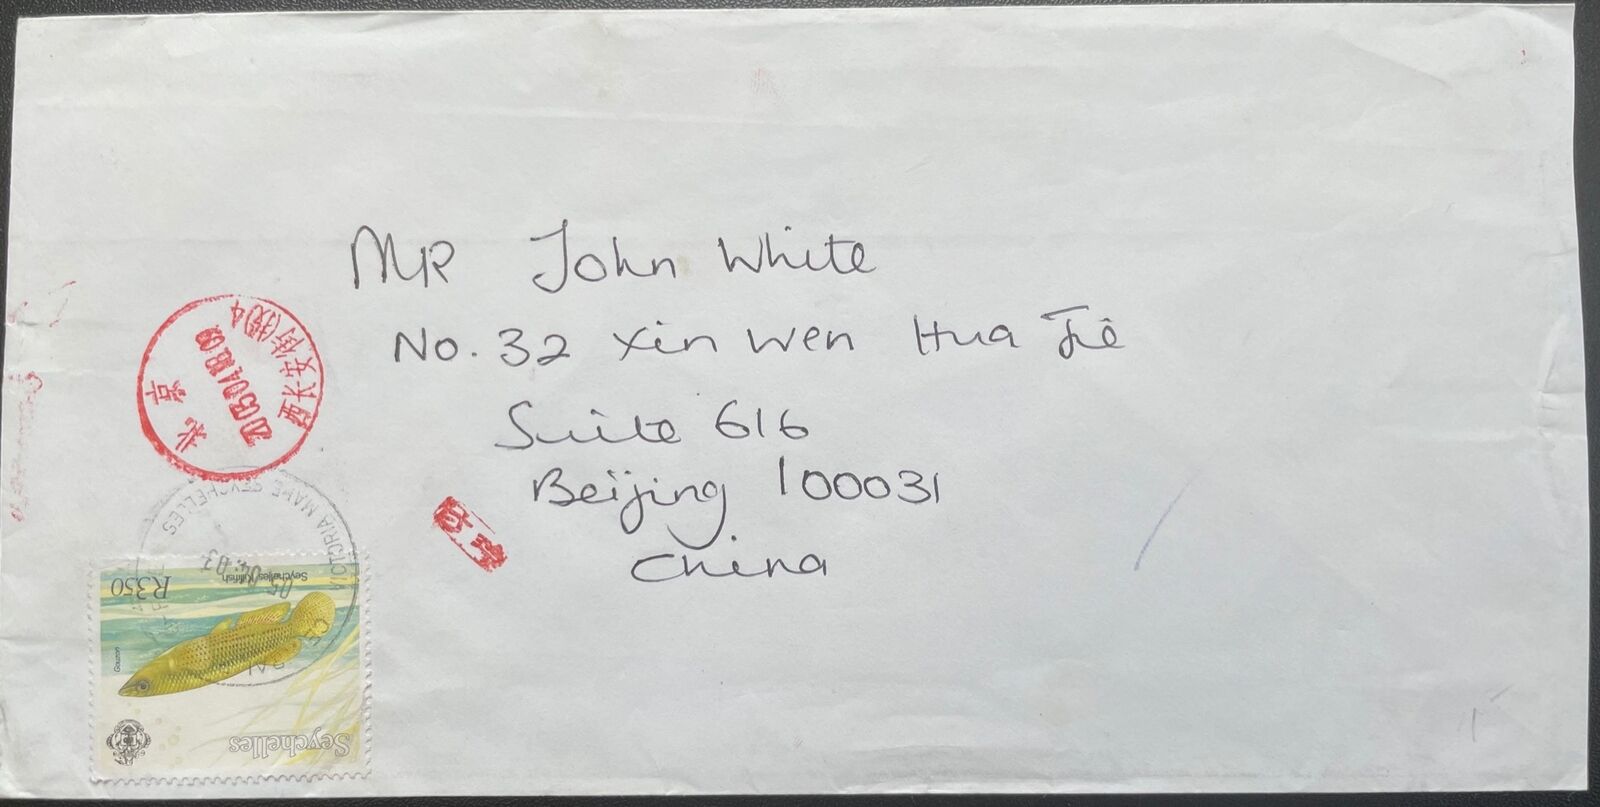 MR John White
No. 32 Xin Wen Hua Jiē
Suite 616
Beijing 100031
China
北京
2013.04.18.09
西长安街(投)4
VICTORIA MAHE SEYCHELLES
05.04.03
R3.50
Seychelles Killifish
Gouzon
Seychelles